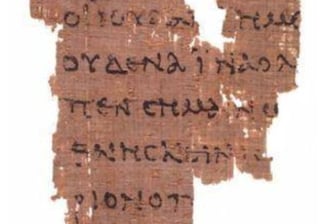 ΟΙ ΙΟΥΔΑΙ ΗΜ
ΟΥΔΕΝΑ ΙΝΑ Ο Λ
ΠΕΝ CΗΜΑΙΝΩ
ΘΝΗCΚΕΙΝ
ΡΙΟΝ Ο Π